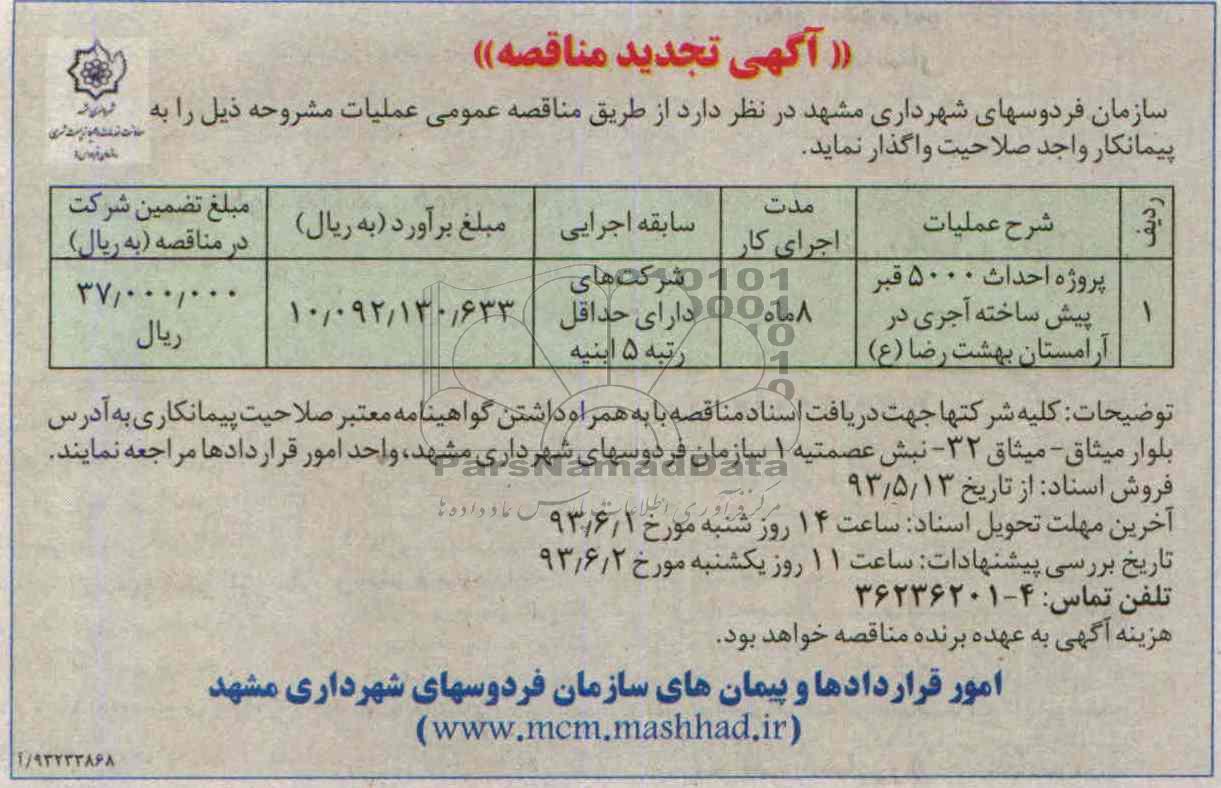 (( آگهی تجدید مناقصه ))
سازمان فردوسهای شهرداری مشهد در نظر دارد از طریق مناقصه عمومی عملیات مشروحه ذیل را به
پیمانکار واجد صلاحیت واگذار نماید.
ردیف | شرح عملیات | مدت اجرای کار | سابقه اجرایی | مبلغ برآورد (به ریال) | مبلغ تضمین شرکت در مناقصه (به ریال)
۱ | پروژه احداث ۵۰۰۰ قبر پیش ساخته آجری در آرامستان بهشت رضا (ع) | ۸ماه | شرکت‌های دارای حداقل رتبه ۵ ابنیه | ۱۰٫۰۹۲٫۱۳۰٫۶۳۳ | ۳۷٫۰۰۰٫۰۰۰ ریال
توضیحات: کلیه شرکتها جهت دریافت اسناد مناقصه با به همراه داشتن گواهینامه معتبر صلاحیت پیمانکاری به آدرس
بلوار میثاق- میثاق ۳۲- نبش عصمتیه ۱ سازمان فردوسهای شهرداری مشهد، واحد امور قراردادها مراجعه نمایند.
فروش اسناد: از تاریخ ۹۳٫۵٫۱۳
آخرین مهلت تحویل اسناد: ساعت ۱۴ روز شنبه مورخ ۹۳٫۶٫۱
تاریخ بررسی پیشنهادات: ساعت ۱۱ روز یکشنبه مورخ ۹۳٫۶٫۲
تلفن تماس: ۴-۳۶۲۳۶۲۰۱
هزینه آگهی به عهده برنده مناقصه خواهد بود.
امور قراردادها و پیمان های سازمان فردوسهای شهرداری مشهد
(www.mcm.mashhad.ir)
۹۳۲۳۳۸۶۸/آ
ParsNamadData
مرکز فرآوری اطلاعات پارس نماد داده ها